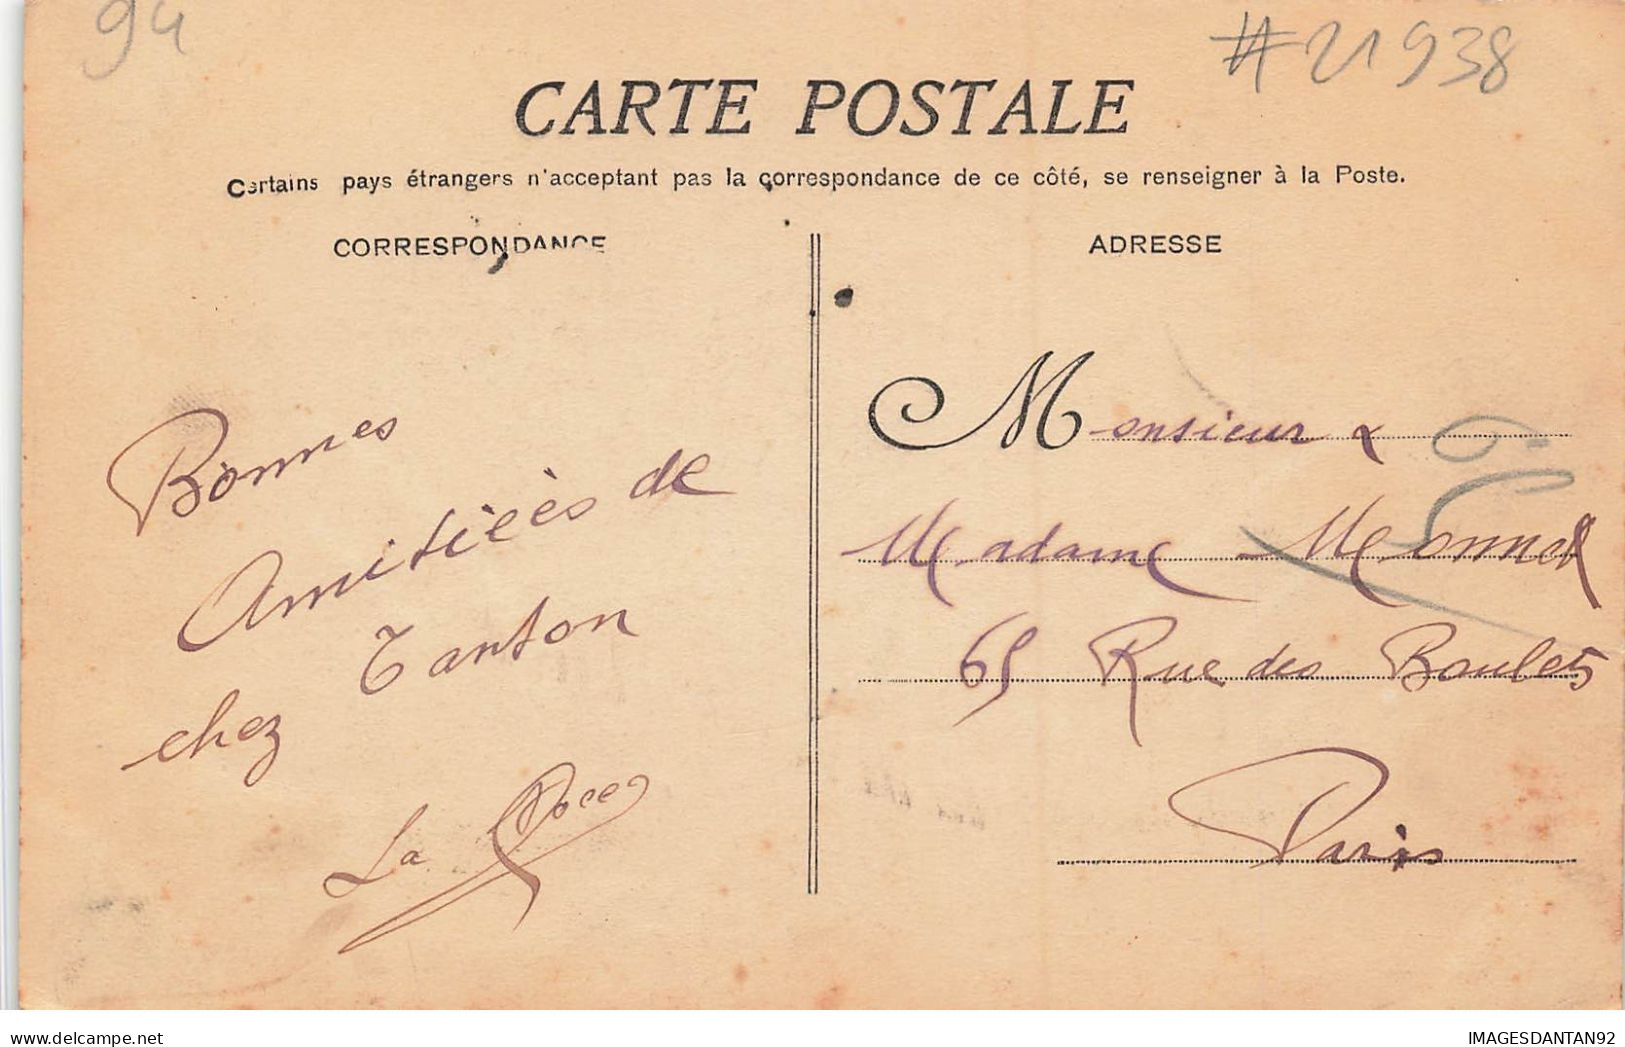 94
#21938
CARTE POSTALE
Certains pays étrangers n'acceptant pas la correspondance de ce côté, se renseigner à la Poste.
CORRESPONDANCE
Bonnes
Amitiéès de
chez Tanton
La
ADRESSE
Monsieur &
Madame Monnet
65 Rue des Boulets
Paris
IMAGESDANTAN92